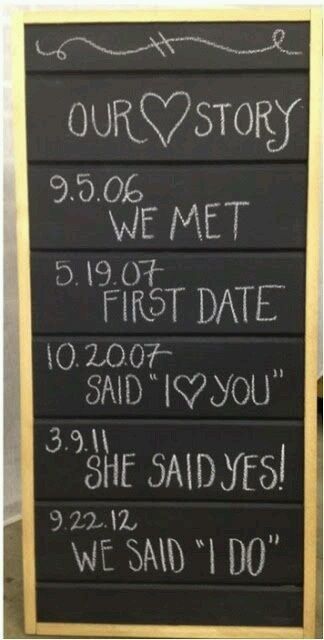 OUR♡STORY
9.5.06
WE MET
5.19.07
FIRST DATE
10.20.07
SAID "I♡YOU"
3.9.11
SHE SAID YES!
9.22.12
WE SAID "I DO"